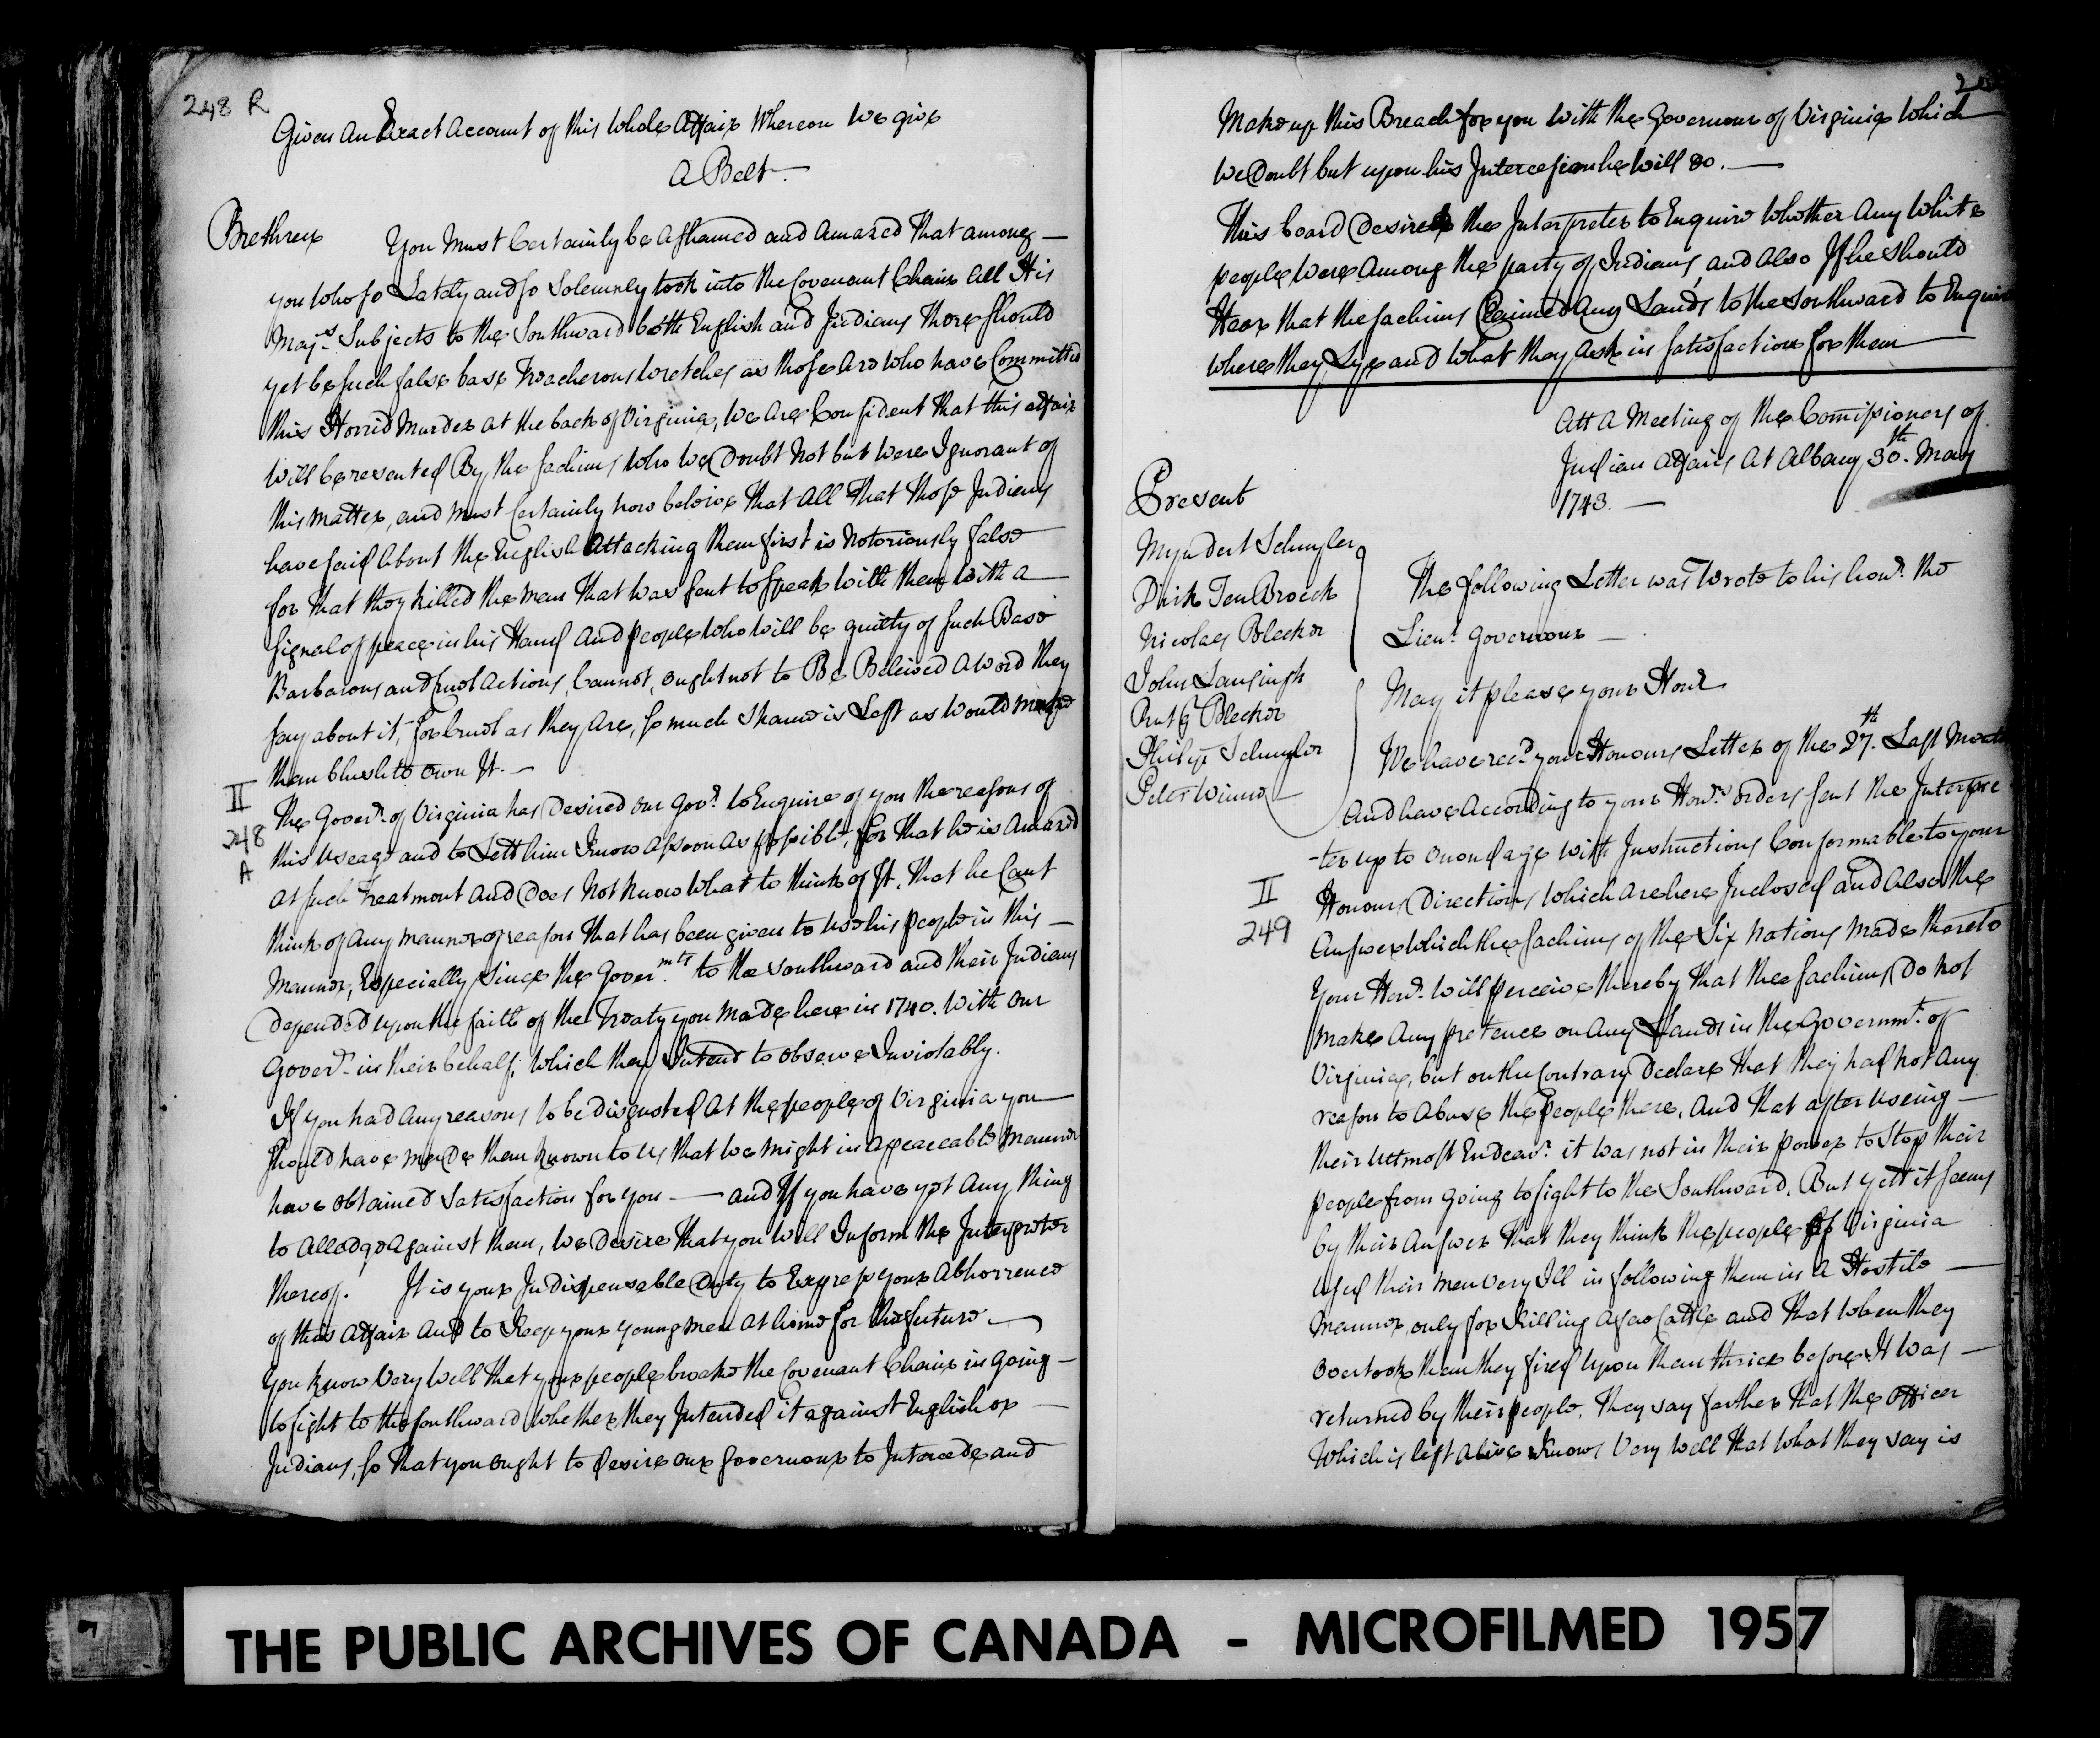 248 R
Given An Exact Account of this Whole Affair Whereon We give
A Belt.
Brethren You Must Certainly be Ashamed and Amazed That among
you who so Lately and so Solemnly took into the Covenant Chain All His
Maj.s Subjects to the Southward both English and Indians There should
yet be such false base Treacherous Wretches as those Are Who have Committed
this Horrid Murder at the back of Virginia, We Are Confident That this affair
Will be resented By the Sachims Who We Doubt Not but Were Ignorant of
this Matter, and Must Certainly now beleive That All That those Indians
have said About the English Attacking them first is Notoriously false
for That they killed the Men That Was sent to speak With them With a
Signal of peace in his Hand And people Who Will be guilty of such Base
Barbarous and Cruel Actions, Cannot, ought not to Be Beleived a Word They
say about it, for Cruel as they Are, so much Shame is Left as Would make
them blush to own It. —
II
248
A
The Gover.r of Virginia has Desired our Gov.r to Enquire of you the reasons of
this Useage and to Lett him Know As soon As possible, for That he is Amazed
At such Treatment And Does Not Know What to think of It, That he Cant
think of Any Mannor of reason That has been given to Use his people in this —
Mannor, Especially Since the Gover.mts to the Southward and their Indians
Depended upon the faith of the Treaty you Made here in 1740. With our
Gover.r in their behalf, Which they Intend to observe Inviolably.
If you had Any reasons to be Disgusted At the people of Virginia you
should have made them Known to Us that We Might in A peaceable Mannor
have obtained Satisfaction for you — and If you have yet Any thing
to Alledge Against them, We Desire That you Will Inform the Interpreter
thereof. It is your Indispensable Duty to Express your Abhorrence
of this Affair And to Keep your young Men At home for the future —
You Know Very Well That your people broake the Covenant Chain in going —
to fight to the southward Whether they Intended it against English or —
Indians, so That you ought to desire our Governour to Intercede and
Make up this Breach for you With the Governour of Virginia Which
We Doubt but upon his Intercession he Will Do. —
This board Desired the Interpreter to Enquire Whether Any White
people Were Among the party of Indians, and Also If he should
Hear that the Sachims Claimed Any Lands to the Southward to Enquire
where they Lye and What they Ask in Satisfaction for them
Att A Meeting of the Comissioners of
Indian Affairs At Albany 30.th May
1743. —
Present
Myndert Schuyler
Dirk Ten Broeck
Nicolaes Bleeker
John Lansingh
Rutg Bleeker
Philip Schuyler
Peter Winne
The following Letter was Wrote to his hon.r the
Lieu.t Governour —
May it please your Hon.r
We have rec.d your Honours Letter of the 27.th Last Month
And have According to your Hon.rs orders sent the Interpre
-ter up to Onondage With Instructions Conformable to your
II
249
Honours Directions Which Are here Inclosed and Also the
Answer Which the Sachims of the Six Nations Made thereto
Your Hon.r Will perceive thereby That the Sachims Do Not
Make Any pretence on Any Lands in the Governm.t of
Virginia, but on the Contrary Declare That they had Not Any
reason to Abuse the People there, And That after Useing —
their Uttmost Endeav.r it was not in their power to Stop their
people from going to fight to the Southward, But yett it seems
by their Answer That they think the people of Virginia
Used their Men Very Ill in following them in A Hostile —
Mannor only for Killing A few Cattle and That When they
overtook them they fired Upon them thrice before It Was —
returned by their people. They say farther That the Officer
Which is left Alive Knows Very Well That What they say is
THE PUBLIC ARCHIVES OF CANADA - MICROFILMED 1957